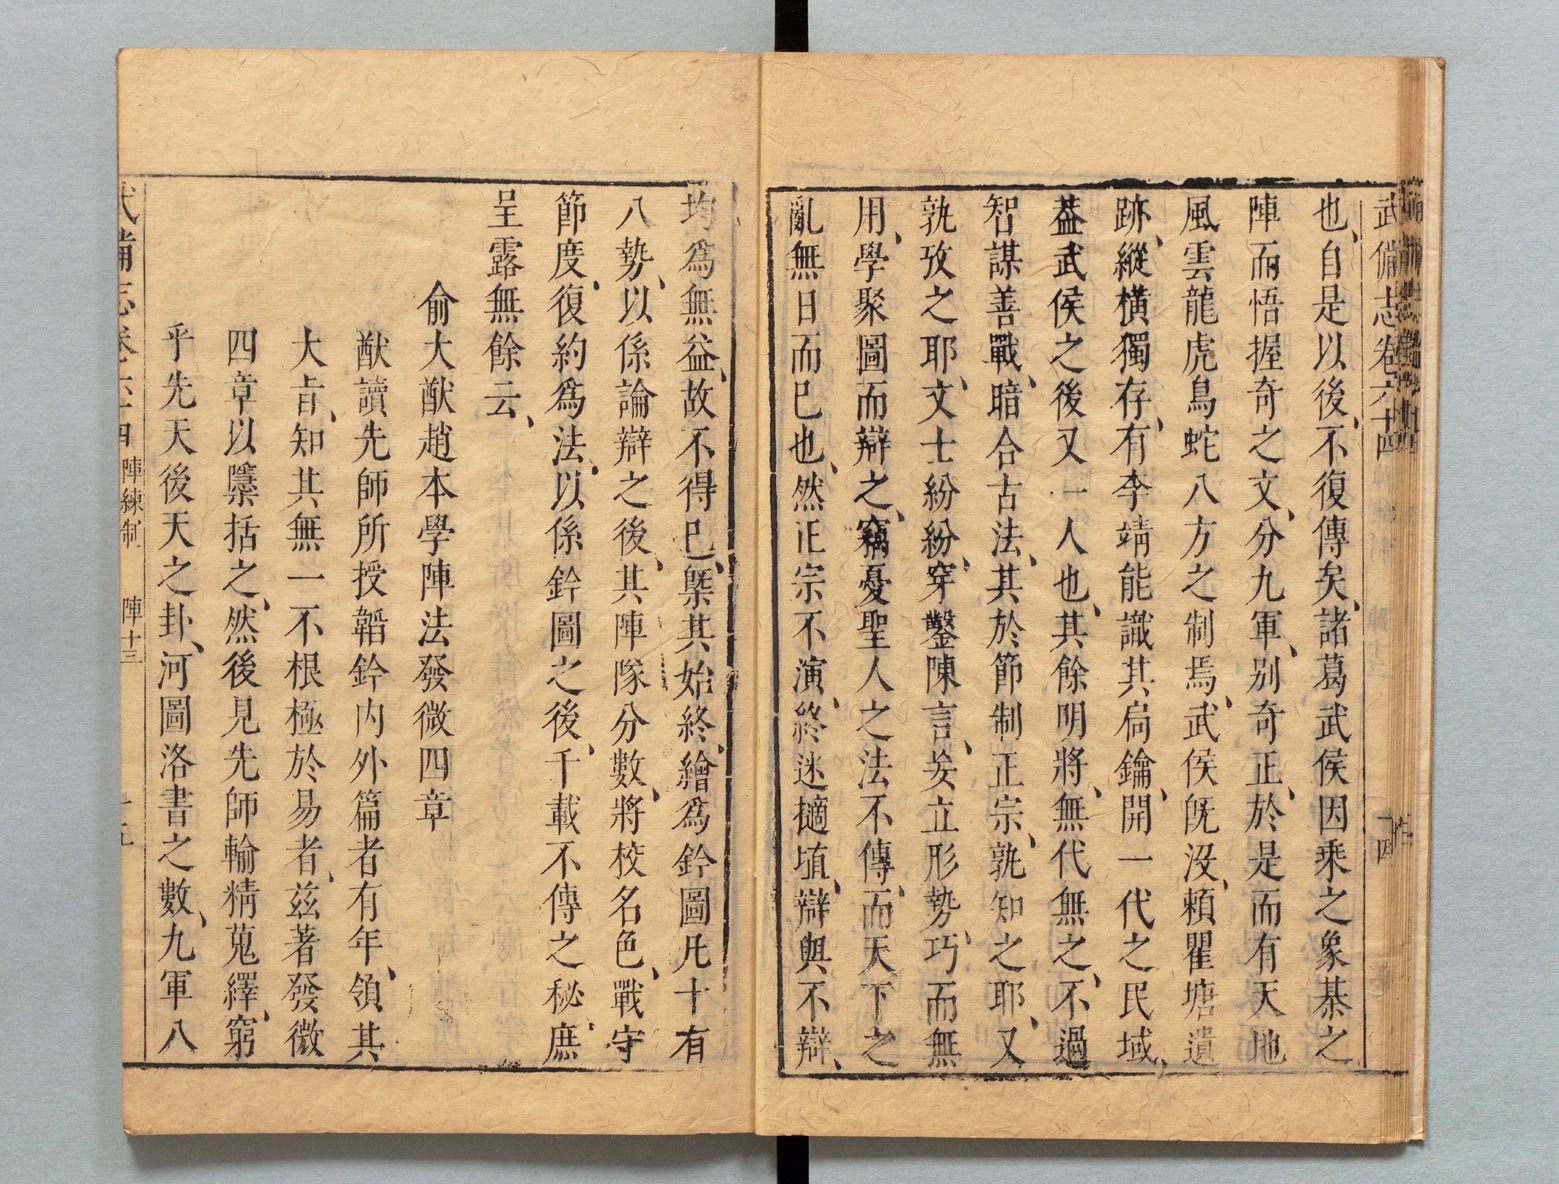 武備志卷六十四
也自是以後不復傳矣諸葛武侯因乘之象綦之
陣而悟握奇之文分九軍别奇正於是而有天地
風雲龍虎鳥蛇八方之制焉武侯旣没賴瞿塘遺
跡縱橫獨存有李靖能識其扃鑰開一代之民域
葢武侯之後又一人也其餘明將無代無之不過
智謀善戰暗合古法其於節制正宗孰知之耶又
孰攷之耶文士紛紛穿鑿陳言妄立形勢巧而無
用學聚圖而辯之竊憂聖人之法不傳而天下之
亂無日而巳也然正宗不演終迷擿埴辯與不辯
均爲無益故不得巳槩其始終繪爲鈐圖凡十有
八勢以係論辯之後其陣隊分數將校名色戰守
節度復約爲法以係鈐圖之後千載不傳之秘庶
呈露無餘云
俞大猷趙本學陣法發微四章
猷讀先師所授韜鈐内外篇者有年領其
大旨知其無一不根極於易者兹著發微
四章以檃括之然後見先師輸精蒐繹窮
乎先天後天之卦河圖洛書之數九軍八
武備志卷六十四 陣練制 陣十三